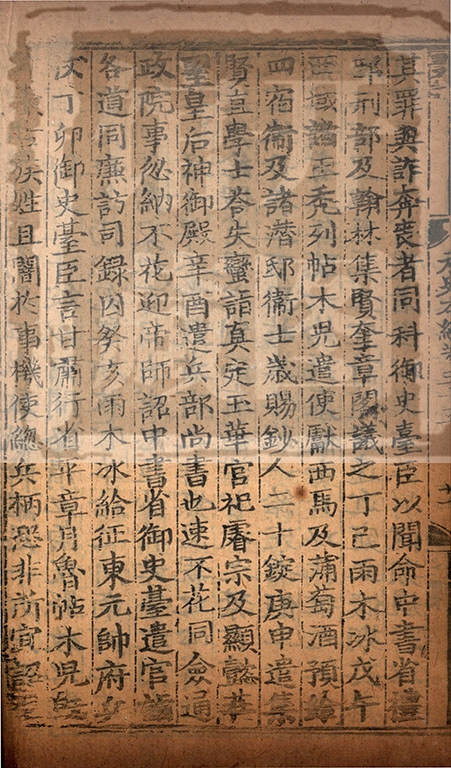 其罪與詐奔喪者同科御史臺臣以聞命中書省禮
部刑部及翰林集賢奎章閣議之丁巳雨木冰戊午
西域諸王禿列帖木兒遣使獻西馬及蒲萄酒預給
四宿衞及諸潛邸衞士歲賜鈔人二十錠庚申遣集
賢直學士荅失蠻詣真定玉華宮祀睿宗及顯懿莊
聖皇后神御殿辛酉遣兵部尚書也速不花同僉通
政院事忽納不花迎帝師詔中書省御史臺遣官詣
各道同廉訪司錄囚癸亥雨木冰給征東元帥府
丁卯御史臺臣言甘肅行省平章月魯帖木兒
族姓且闇於事機使總兵柄恐非所宜詔